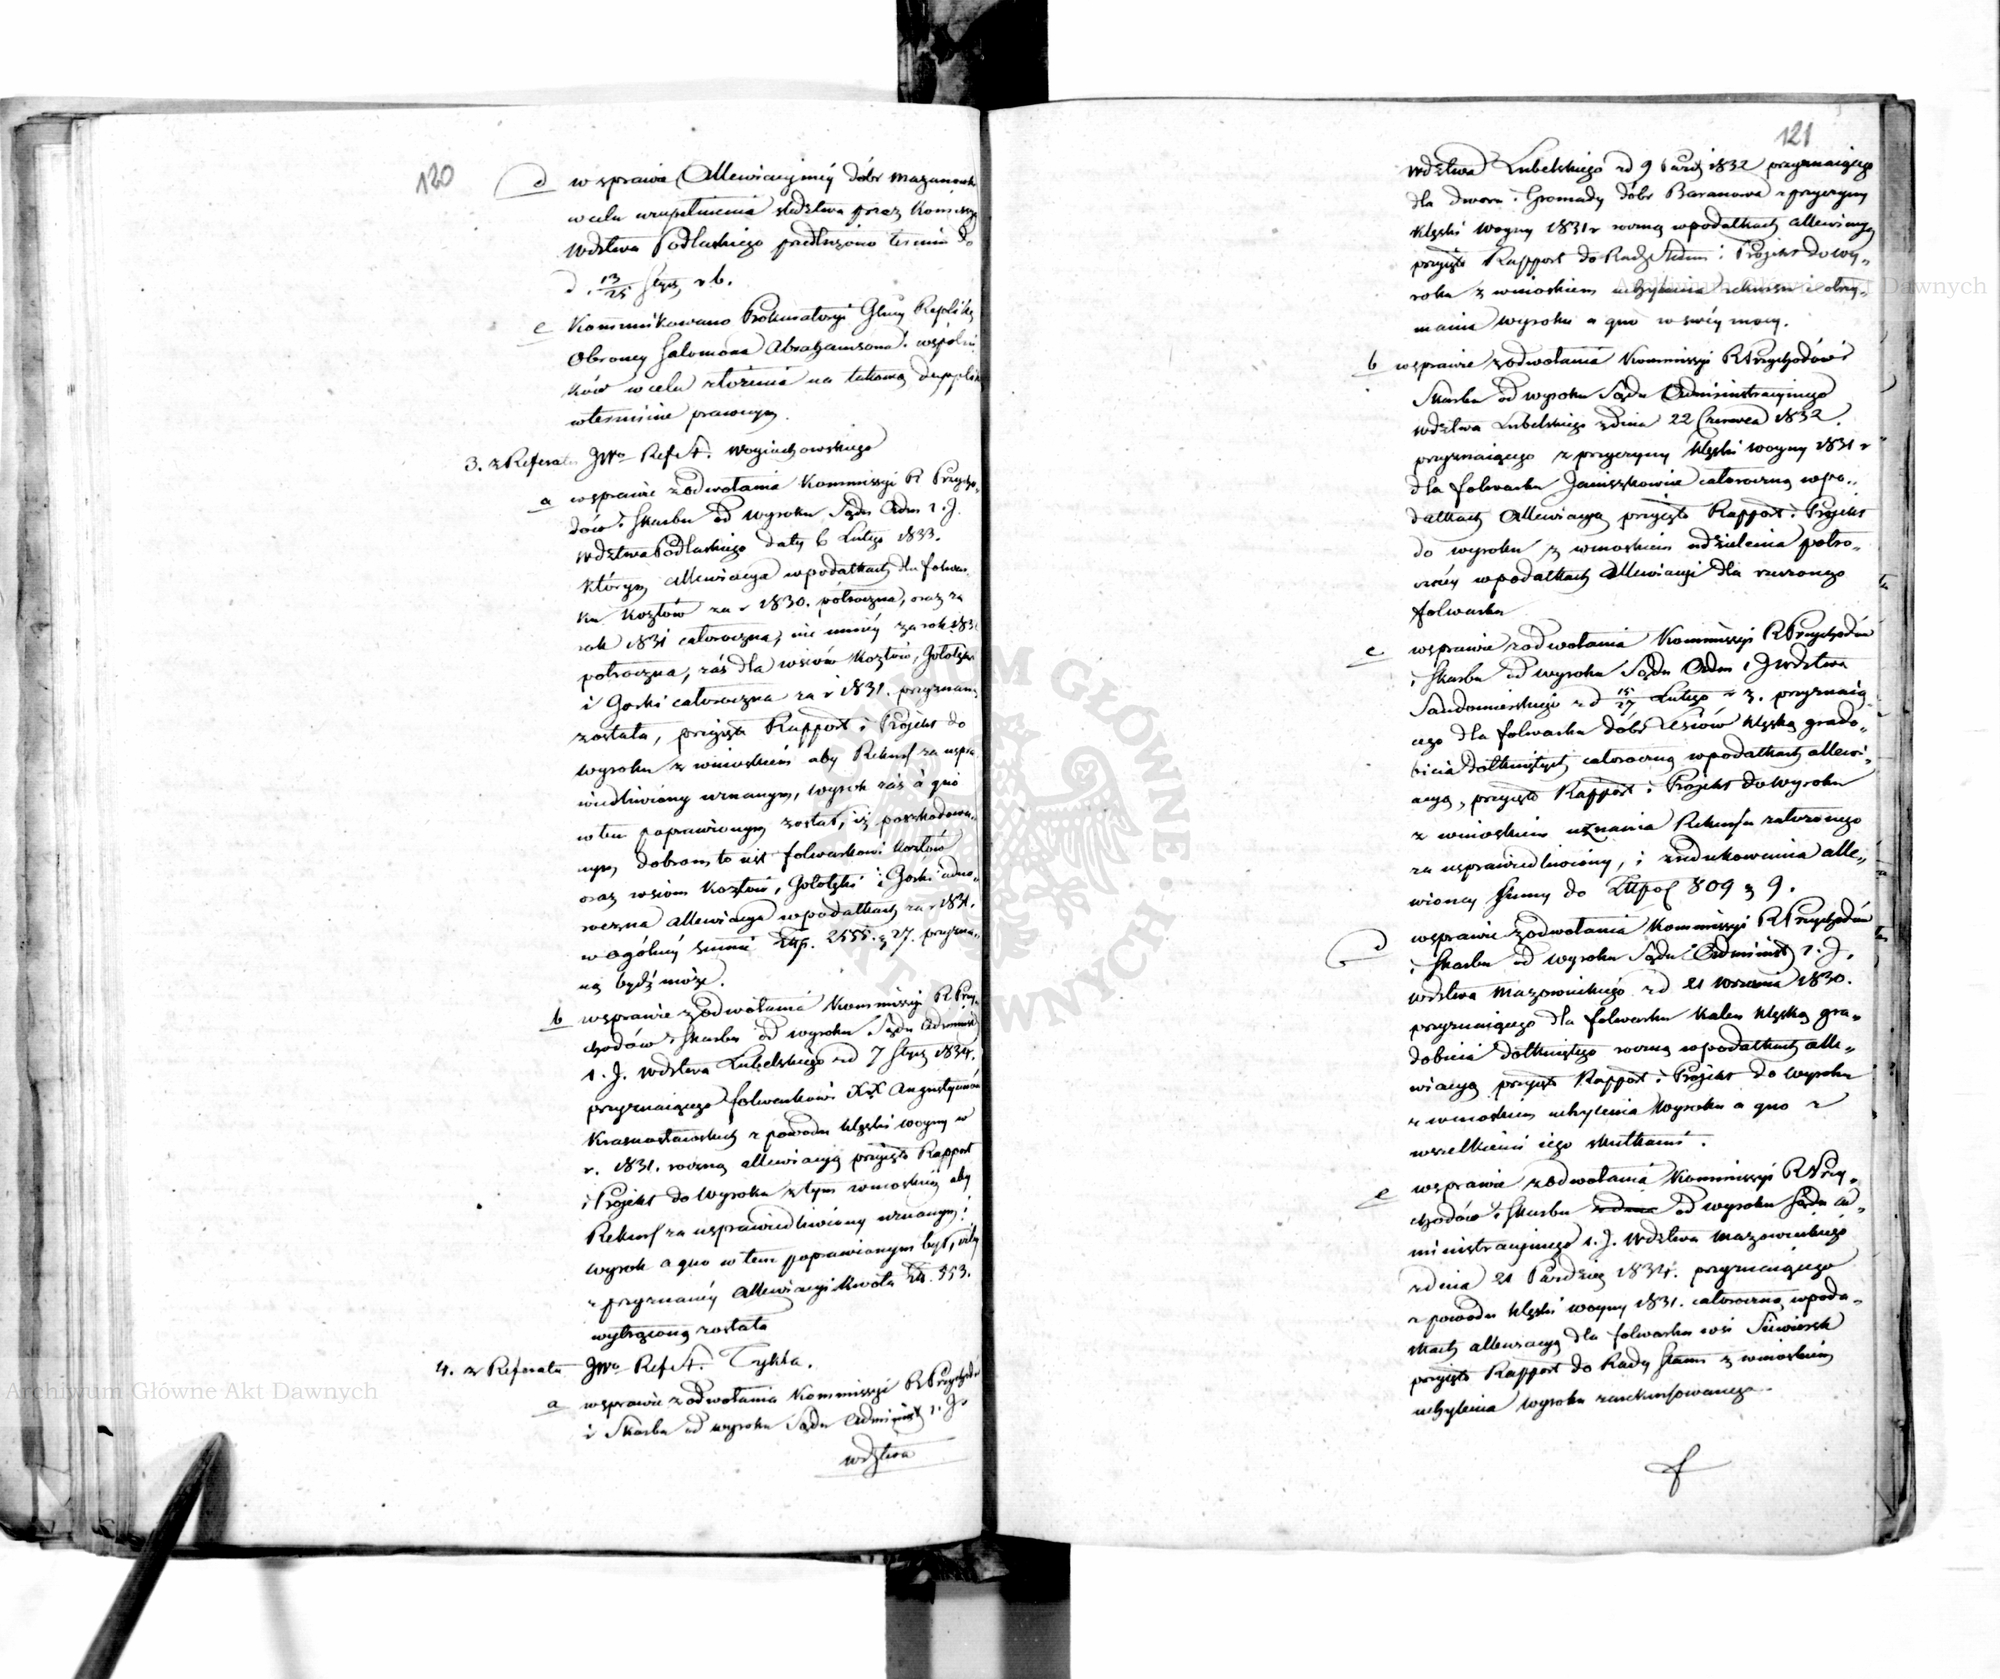 120
d w sprawie Allewiacyjnéy dóbr Mazanowka
w celu uzupełnienia śledztwa przez Kommissyą
Wdztwa Podlaskiego przedłużono termin do
d. 13/25 Stycz. r b.
e Kommunikowano Prokuratoryi Glney Replikę
Obrońcy Salomona Abrahamsona i wspólni-
ków w celu złożenia na takową duppliki
w terminie prawnym.
3. z Referatu JWo Ref. St. Woyciechowskiego
a w sprawie z odwołania Kommissyi R Przycho-
dów i Skarbu od wyroku Sądu Adm. i. J.
Wdztwa Podlaskiego daty 6 Lutego 1833.
którym allewiacya w podatkach dla folwar-
ku Kozłów za r 1830. półroczna, oraz za
rok 1831 całoroczna, nie mniéy za rok 183
półroczna, zaś dla wsiów Kozłów, Gołotzki
i Gorki całoroczna za r 1831. przyznana
została, przyięto Rapport i Projekt do
wyroku z wnioskiem aby Rekurs za uspra-
wiedliwiony uznanym, wyrok zaś à quo
w tem poprawionym został, iż poszkodowa-
nym dobrom to iest folwarkowi Kozłów
oraz wsiom Kozłów, Gołotzki i Górki iedno-
roczna allewiacya w podatkach za r 1831.
w ogólnéy summie Złp. 2555. g 27. przyzna-
ną bydź może.
b w sprawie z odwołania Kommissyi R Przy-
chodów i Skarbu od wyroku Sądu Administ
i. J. Wdztwa Lubelskiego z d 7 Stycz 1834.
przyznaiącego folwarkowi XX Augustyanów
Krasnostawskich z powodu klęski woyny w
r. 1831. roczną allewiacyą przyięto Rapport
i Projekt do Wyroku z tym wnioskiem aby
Rekurs za usprawiedliwiony uznanym i
wyrok a quo w tem poprawionym był, iżby
z przyznanéy allewiacyi kwota Zł. 553.
wytrąconą została
4. z Referatu JWo Ref. St. Tykla.
a w sprawie z odwołania Kommissyi R Przychodów
i Skarbu od wyroku Sądu Administ i. J.
Wdztwa
121
Wdztwa Lubelskiego z d 9 Paźdz 1832 przyznaiącego
dla dworu i Gromady dóbr Baranowa z przyczyny
klęski woyny 1831 r roczną w podatkach allewiacyą
przyięto Rapport do Rady Stanu i Projekt do wy-
roku z wnioskiem uchylenia rekursu i utrzy-
mania wyroku a quo w swéy mocy.
b w sprawie z odwołania Kommissyi R Przychodów i
Skarbu od wyroku Sądu Administracyinego
Wdztwa Lubelskiego z dnia 22 Czerwca 1832.
przyznaiącego z przyczyny klęski woyny 1831 r
dla folwarku Janiszkowice całoroczną w po-
datkach allewiacyą przyięto Rapport i Projekt
do wyroku z wnioskiem udzielenia półro-
cznéy w podatkach allewiacyi dla rzeczonego
folwarku
c w sprawie z odwołania Kommissyi R Przychodów
i Skarbu od wyroku Sądu Adm i J Wdztwa
Sandomierskiego z d 15/27 Lutego r z. przyznaią-
cego dla folwarku dóbr Lesiów klęską grado-
bicia dotkniętych całoroczną w podatkach allewi-
acyą, przyięto Rapport i Projekt do Wyroku
z wnioskiem uznania Rekursu założonego
za usprawiedliwiony, i zredukowania alle-
wioney summy do Złlpol 809 g 9.
d w sprawie z odwołania Kommissyi R Przychodów
i Skarbu od wyroku Sądu Administ i. J.
Wdztwa Mazowieckiego z d 21 Września 1830.
przyznaiącego dla folwarku Kalen klęską gra-
dobicia dotkniętego roczną w podatkach alle-
wiacyą przyięto Rapport i Projekt do Wyroku
z wnioskiem uchylenia Wyroku a quo z
wszelkiemi iego skutkami.
e w sprawie z odwołania Kommissyi R Przy-
chodów i Skarbu z dnia od wyroku Sądu Ad-
ministracyjnego i. J. Wdztwa Mazowieckiego
z dnia 21 Paździer 1834. przyznaiącego
z powodu klęski woyny 1831. całoroczną w poda-
tkach allewiacyą dla folwarku wsi Siwiersk
przyięto Rapport do Rady Stanu z wnioskiem
uchylenia wyroku zarekursowanego.
Archiwum Główne Akt Dawnych
Archiwum Główne Akt Dawnych
ARCHIWUM GŁÓWNE AKT DAWNYCH